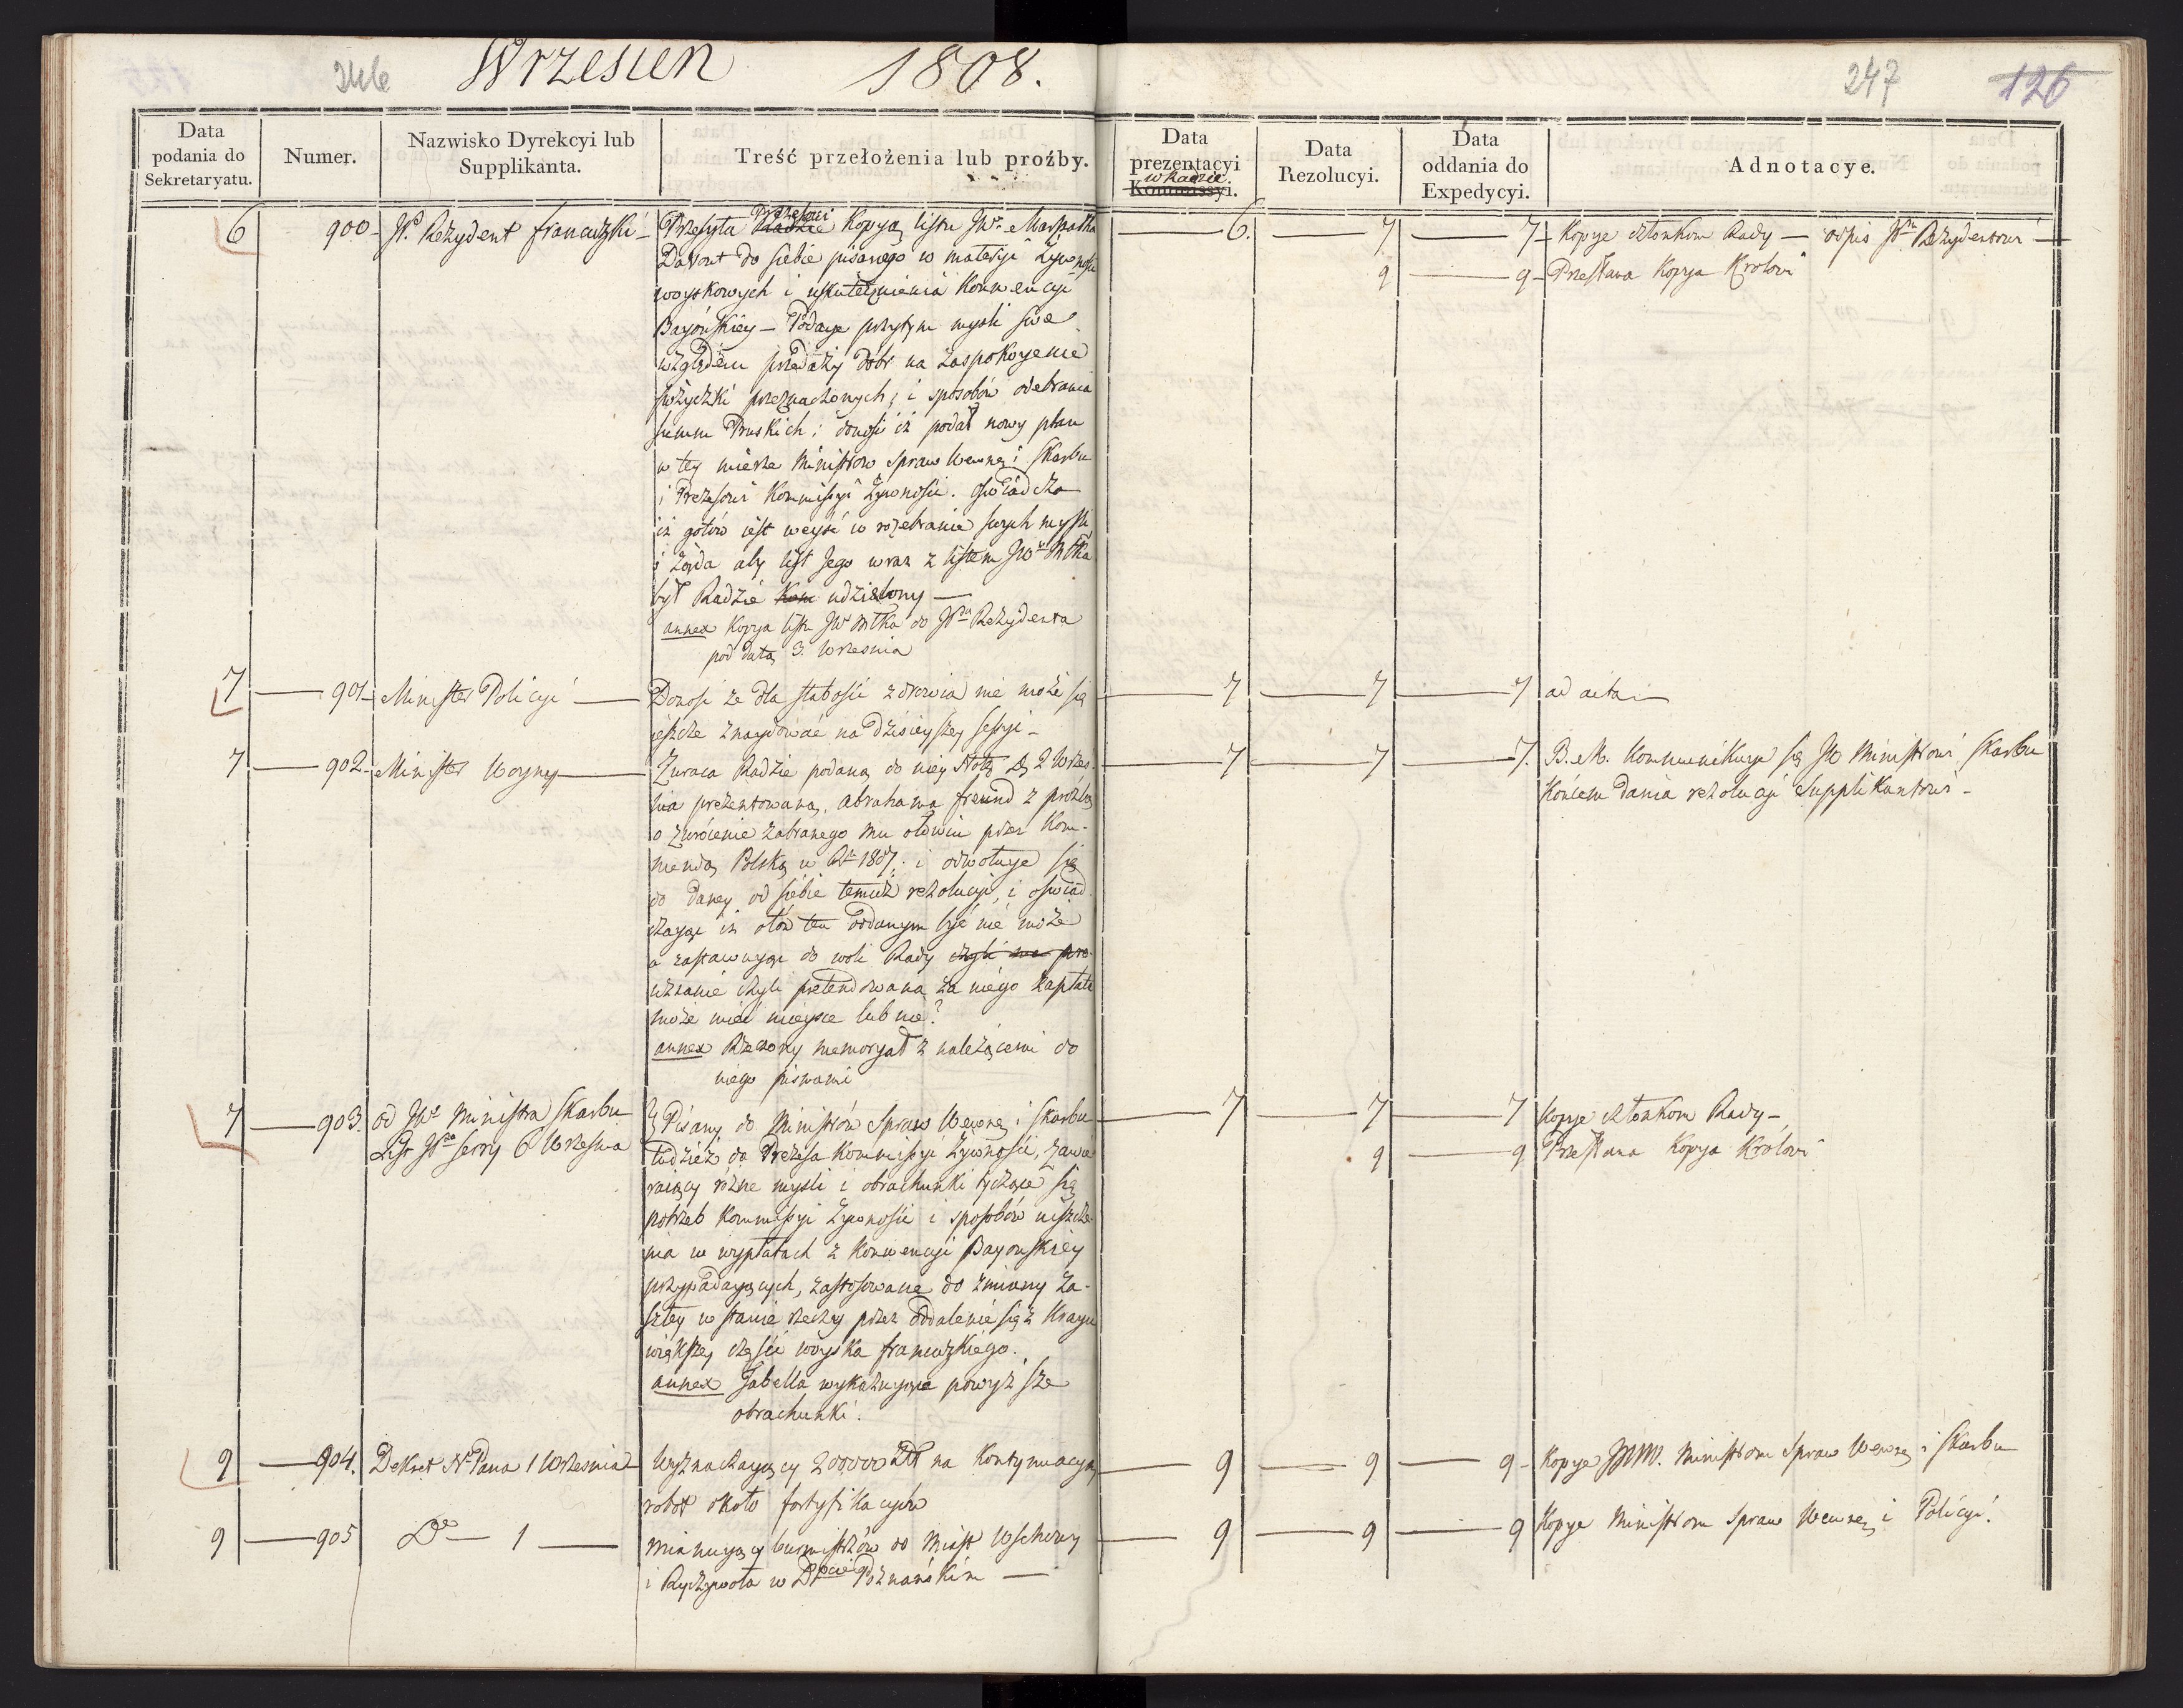 246
Wrzesień 1808.
247
126
Data podania do Sekretaryatu.
Numer.
Nazwisko Dyrekcyi lub Supplikanta.
Treść przełożenia lub proźby.
Data prezentacyi w Radzie Kommissyi.
Data Rezolucyi.
Data oddania do Expedycyi.
Adnotacye.
6 900 JP. Rezydent francuzki
Przesyła Radzie Prezesowi Kopyą listu JW. Marszałka
Davout do siebie pisanego w materyi żywności
woyskowych i uskutecznienia Konwencyi
Bayońskiey — Podaye przytym myśli swe
względem przedaży dóbr na zaspokoyenie
pożyczki przeznaczonych, i sposobów odebrania
summ Pruskich; donosi iż podał nowy plan
w tey mierze Ministrow spraw Wewnę. i Skarbu
i Prezesowi Kommissyi Żywności. Oświadcza
iż gotów iest weyść w rozebranie swych myśli
i żąda aby list Jego wraz z listem JW Młka
był Radzie Kom udzielony —
annex Kopya listu JW Młka do JP. Rezydenta
pod datą 3. Września
6. 7 7 Kopye Członkom Rady — odpis JP. Rezydentowi
9 9 Przesłana Kopya Krolowi
7 901 Minister Policyi
Donosi że dla słabości zdrowia nie może się
ieszcze znaydować na dzisieyszey sessyi —
7 7 7 ad acta
7 902 Minister Woyny
Zwraca Radzie podaną do niey Notę D. 2 Wrześ
nia prezentowaną, Abrahama freund z prozbą
o zwrócenie zabranego mu ołowiu przez Kom-
mendą Polską w Ru 1807; i odwołuye się
do daney od siebie temuż rezolucyi, i oświad
czaiąc iż ołów ten oddanym być nie może
a zastawuyąc do woli Rady czyli na pro
uznanie czyli pretendowana za niego zapłata
może mieć mieysce lub nie?
annex Rzeczony memoryał z należącemi do
niego pismami
7 7 7. B.M. Kommunikuye się JW Ministrowi Skarbu
Końcem dania rezolucyi Supplikantowi —
7 903. od JW Ministra Skarbu
List JP. Serry 6 Września
Pisany do Ministrów Spraw Wewnę. i Skarbu
tudzież do Prezesa Kommissyi Żywności, zawie
raiący różne myśli i obrachunki tyczące się
potrzeb Kommissyi Żywności i sposobów uiszcze
nia w wypłatach z Konwencyi Bayonskiey
przypadaiących, zastosowane do zmiany za-
szłey w stanie rzeczy przez oddalenie się z Kraju
większey części woyska francuzkiego.
annex Tabella wykazuyąca powyższe
obrachunki.
7 7 7 Kopye Członkom Rady —
9 9 Przesłana Kopya Krolowi
9 904. Dekret N. Pana 1 Września
Wyznaczaiący 200000 Zł na Kontynuacyą
robot około fortyfikacyow
9 9 9 Kopye JWW. Ministrom Spraw Wewnę. i Skarbu
9 905 Do 1
mianuyący burmistrzów do Miast Wschowy
i Ryczywoła w Dpcie Poznańskim —
9 9 9 Kopye Ministrom Spraw Wewnę. i Policyi.